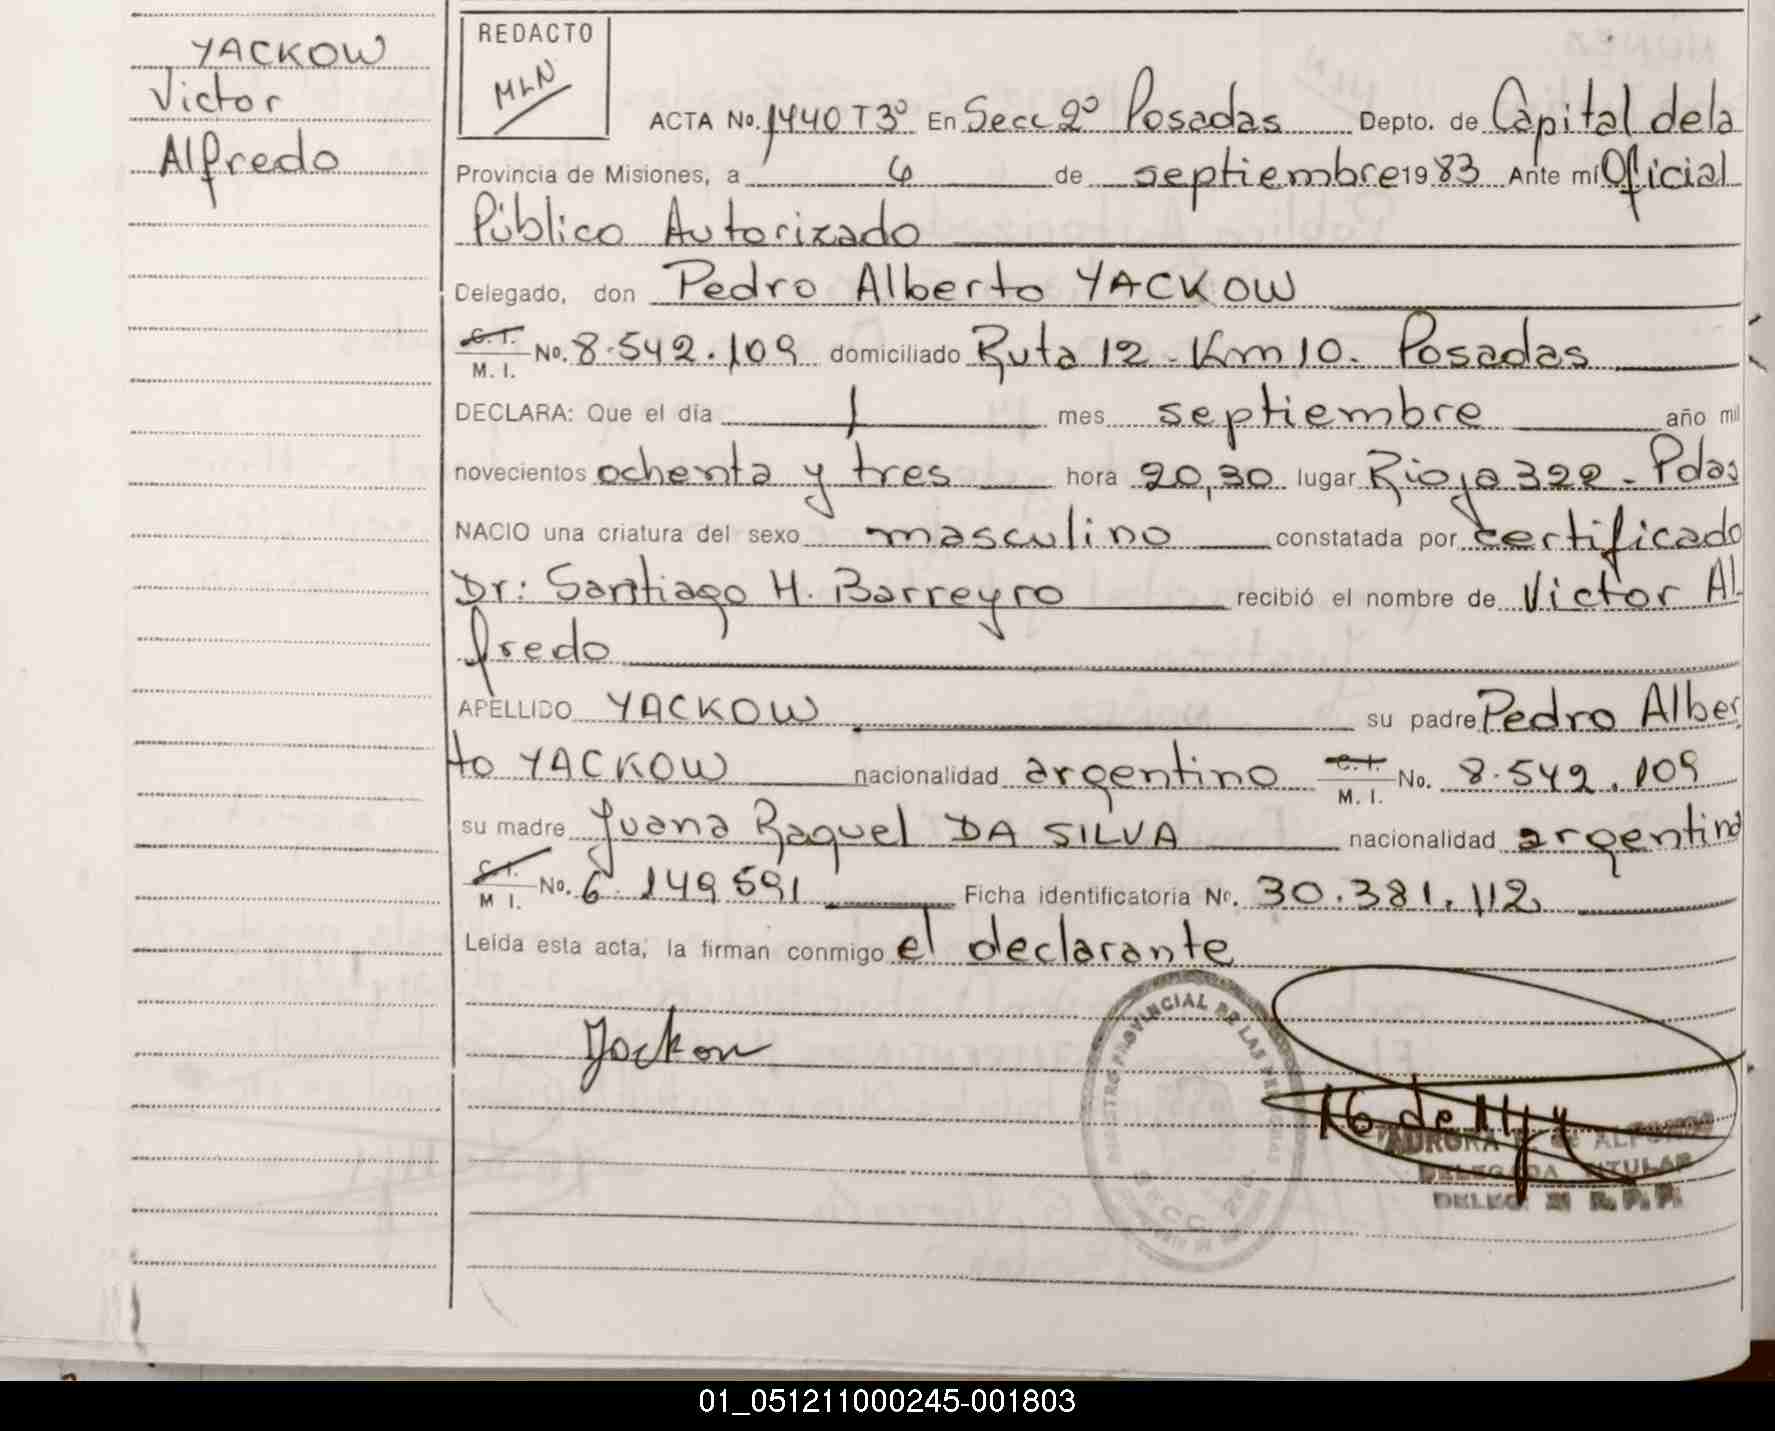 YACKOW
Victor
Alfredo
REDACTO
MLN
ACTA No. 1440 T3º En Secc 2º Posadas Depto. de Capital de la
Provincia de Misiones, a 6 de septiembre 1983 Ante mí Oficial
Público Autorizado
Delegado, don Pedro Alberto YACKOW
C.I. M. I. No. 8.542.109 domiciliado Ruta 12 - Km 10. Posadas
DECLARA: Que el día 1 mes septiembre año mil
novecientos ochenta y tres hora 20,30 lugar Rioja 322 - Pdas
NACIO una criatura del sexo masculino constatada por certificado
Dr: Santiago H. Barreyro recibió el nombre de Victor Al
fredo
APELLIDO YACKOW su padre Pedro Alber
to YACKOW nacionalidad argentino C.I. M. I. No. 8.542.109
su madre Juana Raquel DA SILVA nacionalidad argentina
C.I. M I. No. 6.149591 Ficha identificatoria No. 30.381.112
Leída esta acta, la firman conmigo el declarante
Yackow
REGISTRO PROVINCIAL DE LAS PERSONAS
AURORA ALFONSO
DELEGADA TITULAR
DELEG R. P. P.
01_051211000245-001803